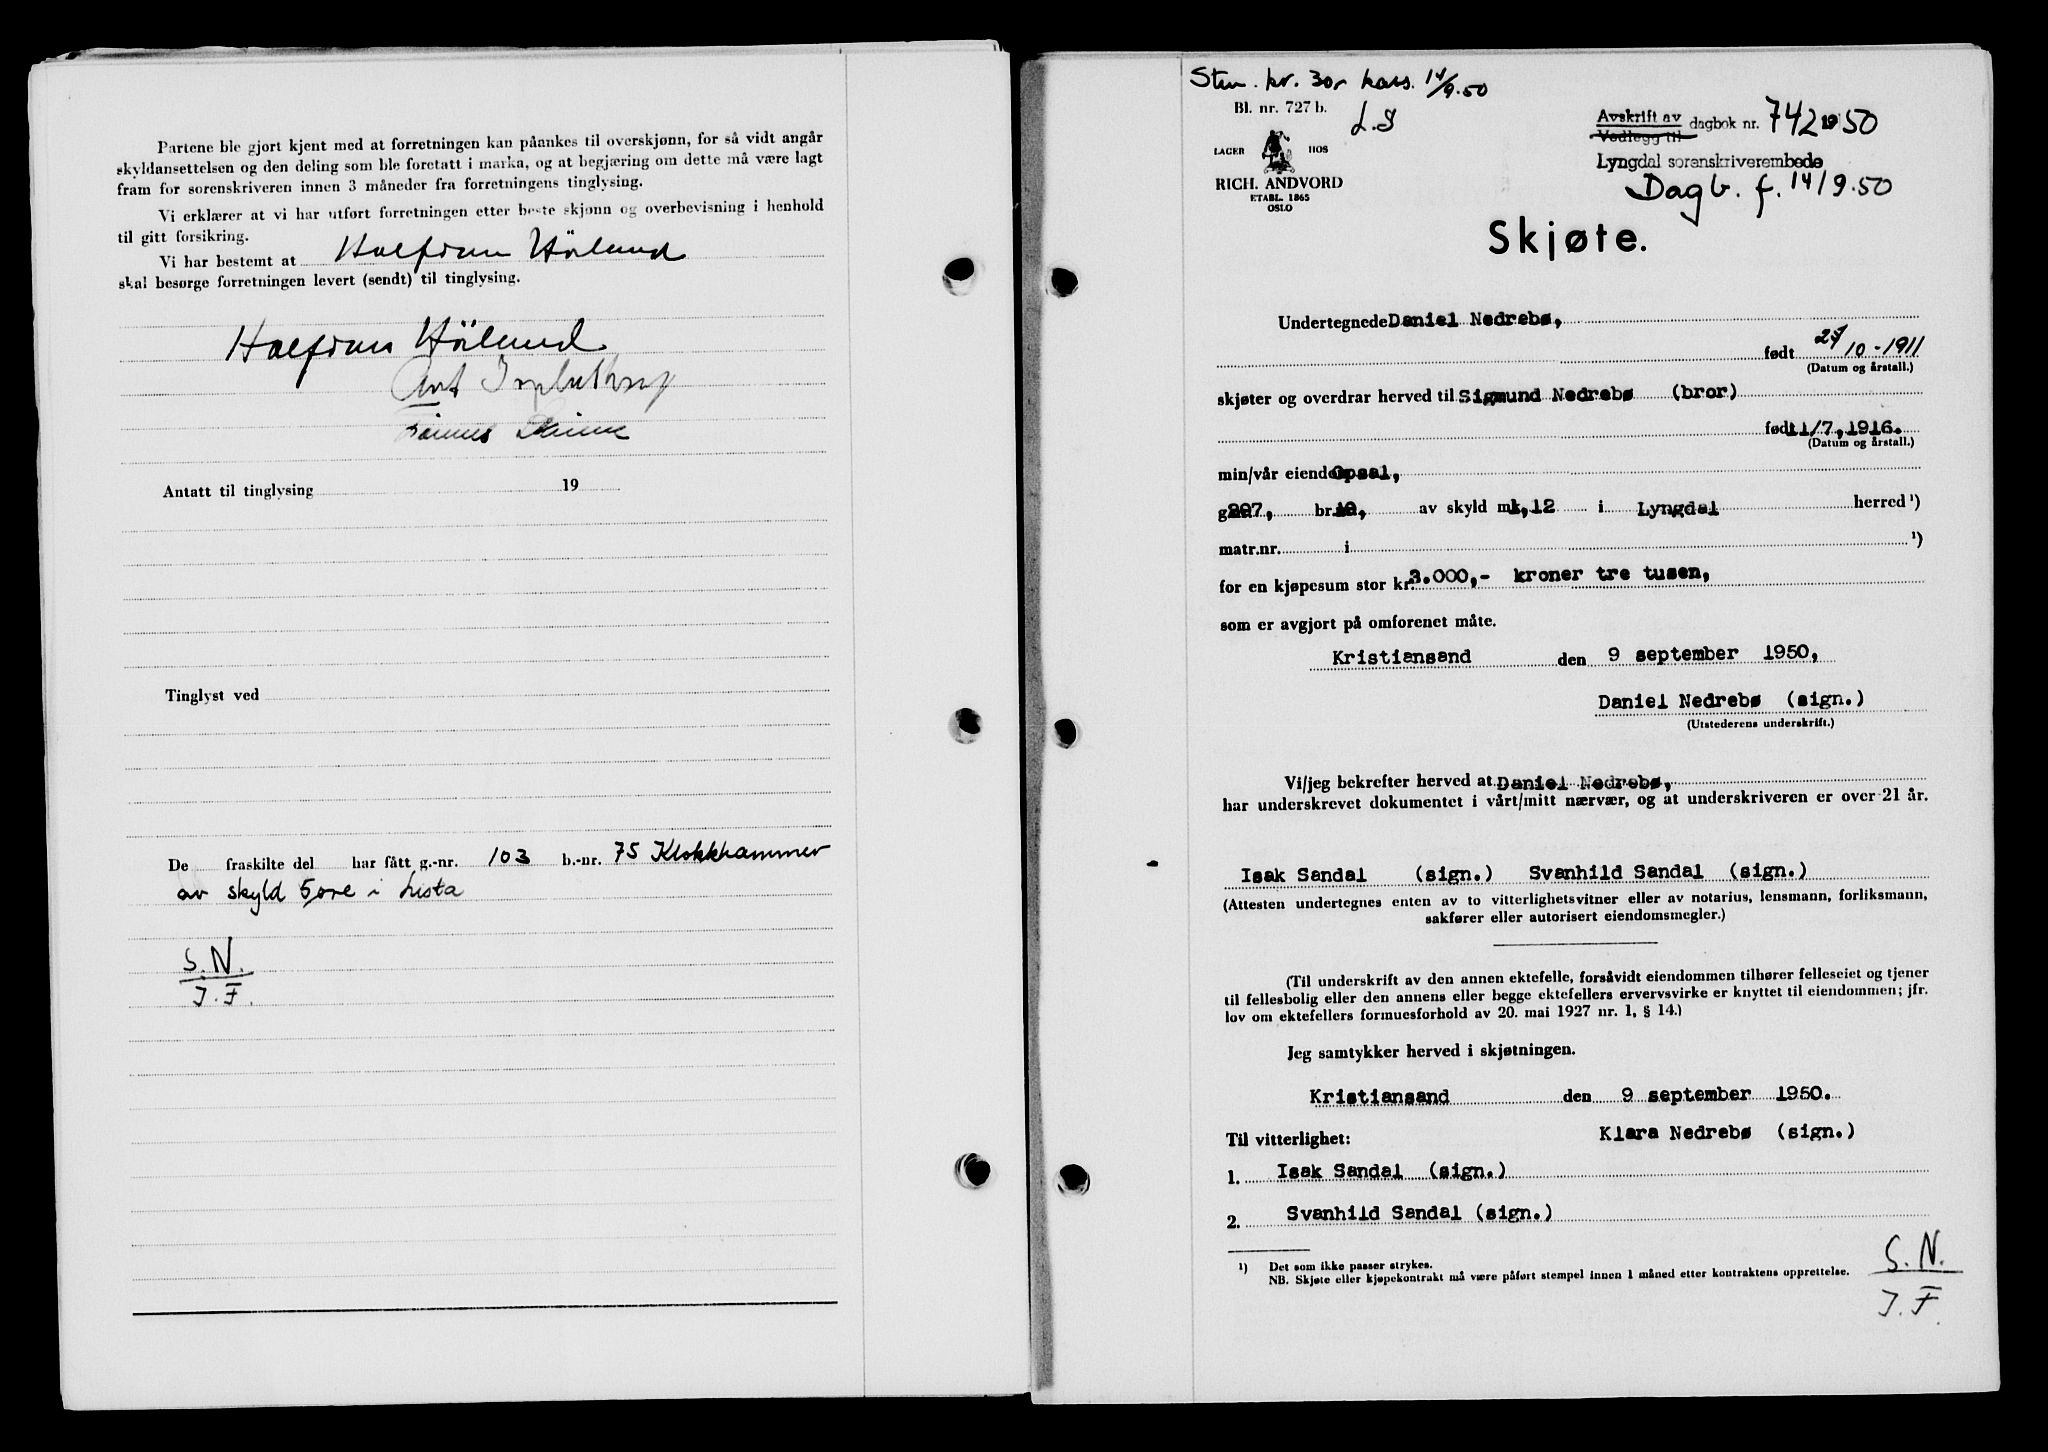 Partene ble gjort kjent med at forretningen kan påankes til overskjønn, for så vidt angår
skyldansettelsen og den deling som ble foretatt i marka, og at begjæring om dette må være lagt
fram for sorenskriveren innen 3 måneder fra forretningens tinglysing.
Vi erklærer at vi har utført forretningen etter beste skjønn og overbevisning i henhold
til gitt forsikring.
Vi har bestemt at Halfdan Hörlund
skal besørge forretningen levert (sendt) til tinglysing.
Halfdan Hörlund
Antatt til tinglysing 19
Tinglyst ved
De fraskilte del har fått g.-nr. 103 b.-nr. 75 Klokkhammer
av skyld 5 øre i Lista
S.N.
J.F.
Stm. kr. 30,- kass. 14/9.50
Bl. nr. 727 b.
L.S
LAGER HOS
RICH. ANDVORD
ETABL. 1865
OSLO
Avskrift av
Vedlegg til dagbok nr. 742 1950
Lyngdal sorenskriverembede
Dagb. f. 14/9.50
Skjøte.
Undertegnede Daniel Nedrebø,
født 10-1911
(Datum og årstall.)
skjøter og overdrar herved til Sigmund Nedrebø (bror)
født 11/7, 1916.
(Datum og årstall.)
min/vår eiendom Opsal,
207, br. 10, av skyld mk. 1,12 i Lyngdal herred ¹)
matr.nr. i ¹)
for en kjøpesum stor kr. 3.000,- kroner tre tusen,
som er avgjort på omforenet måte.
Kristiansand den 9 september 1950,
Daniel Nedrebø (sign.)
(Utstederens underskrift.)
Vi/jeg bekrefter herved at Daniel Nedrebø,
har underskrevet dokumentet i vårt/mitt nærvær, og at underskriveren er over 21 år.
Isak Sandal (sign.) Svanhild Sandal (sign.)
(Attesten undertegnes enten av to vitterlighetsvitner eller av notarius, lensmann, forliksmann,
sakfører eller autorisert eiendomsmegler.)
(Til underskrift av den annen ektefelle, forsåvidt eiendommen tilhører felleseiet og tjener
til fellesbolig eller den annens eller begge ektefellers ervervsvirke er knyttet til eiendommen; jfr.
lov om ektefellers formuesforhold av 20. mai 1927 nr. 1, § 14.)
Jeg samtykker herved i skjøtningen.
Kristiansand den 9 september 1950.
Til vitterlighet: Klara Nedrebø (sign.)
1. Isak Sandal (sign.)
2. Svanhild Sandal (sign.)
¹) Det som ikke passer strykes.
NB. Skjøte eller kjøpekontrakt må være påført stempel innen 1 måned etter kontraktens opprettelse.
S.N.
J.F.